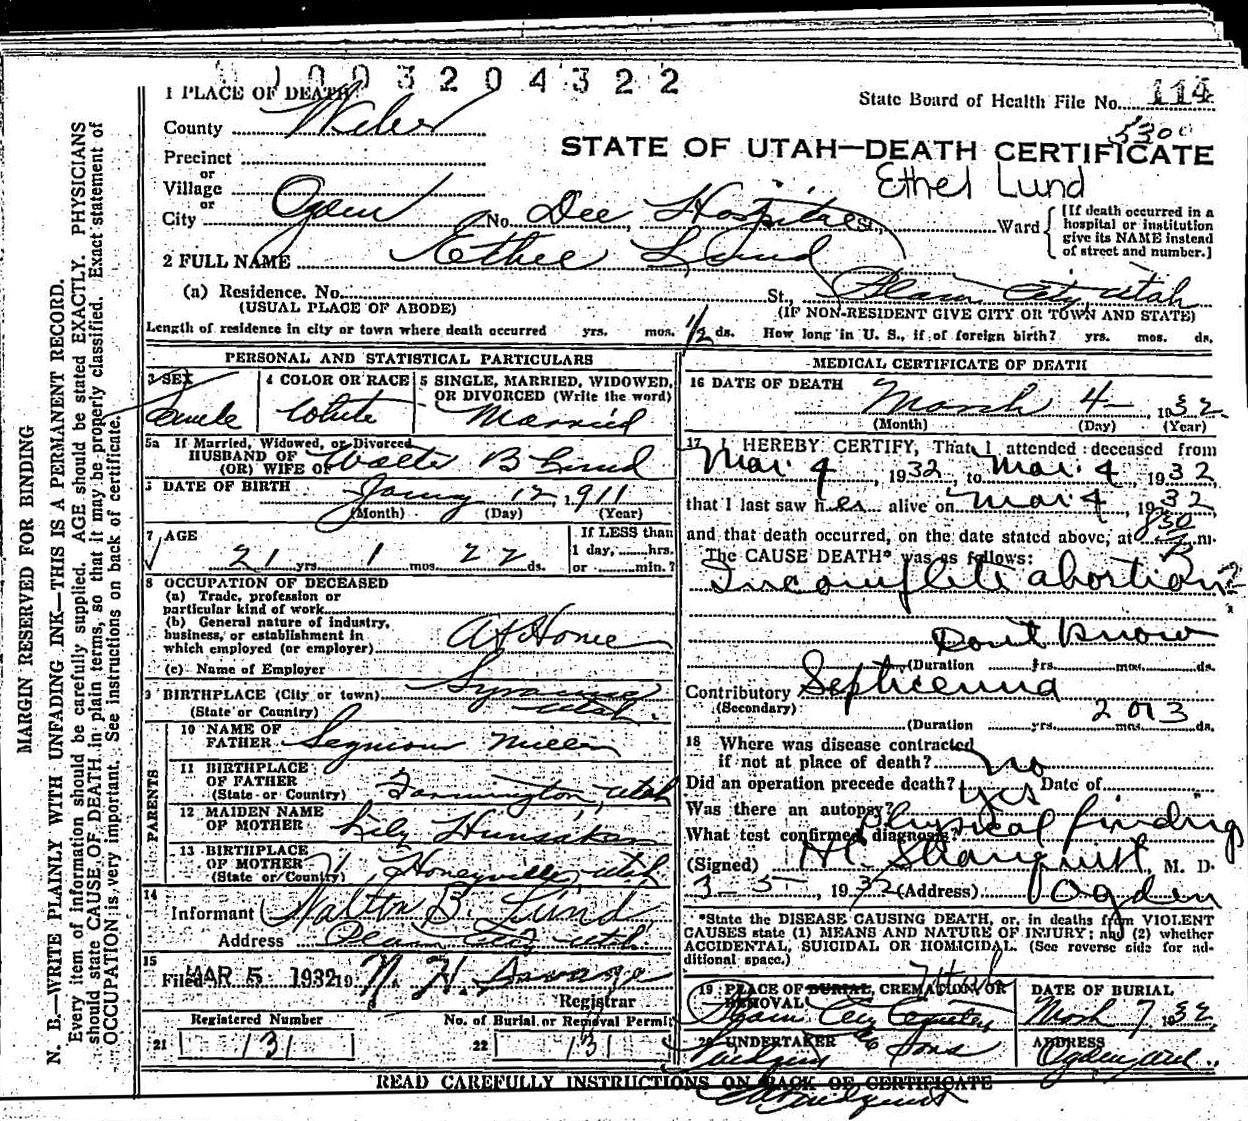 1003204322
1 PLACE OF DEATH
State Board of Health File No. 114
County Weber
5300
STATE OF UTAH—DEATH CERTIFICATE
Precinct
or
Village
Ethel Lund
or
City Ogden No. Dee Hospital St., Ward [If death occurred in a hospital or institution give its NAME instead of street and number.]
2 FULL NAME Ethel Lund
(a) Residence. No. St., Plain City, Utah
(USUAL PLACE OF ABODE) (IF NON-RESIDENT GIVE CITY OR TOWN AND STATE)
Length of residence in city or town where death occurred yrs. mos. 1/2 ds. How long in U. S., if of foreign birth? yrs. mos. ds.
PERSONAL AND STATISTICAL PARTICULARS
3 SEX 4 COLOR OR RACE 5 SINGLE, MARRIED, WIDOWED, OR DIVORCED (Write the word)
Female White Married
5a If Married, Widowed, or Divorced
HUSBAND OF
(OR) WIFE OF Walter B Lund
DATE OF BIRTH 12 1911
(Month) (Day) (Year)
7 AGE If LESS than
21 yrs. 1 mos. 22 ds. 1 day, hrs. or min.?
8 OCCUPATION OF DECEASED
(a) Trade, profession or
particular kind of work
(b) General nature of industry,
business, or establishment in
which employed (or employer) At Home
(c) Name of Employer
9 BIRTHPLACE (City or town) Syracuse
(State or Country) Utah.
PARENTS
10 NAME OF
FATHER Seymour Miller
11 BIRTHPLACE
OF FATHER
(State or Country) Farmington, Utah
12 MAIDEN NAME
OF MOTHER Lily Hunsaker
13 BIRTHPLACE
OF MOTHER
(State or Country) Honeyville, Utah
14
Informant Walton B. Lund
Address Plain City Utah
15
Filed MAR 5 1932 19 Savage
Registrar
Registered Number No. of Burial or Removal Permit
21 131 22 131
MEDICAL CERTIFICATE OF DEATH
16 DATE OF DEATH
March 4 1932
(Month) (Day) (Year)
17 I HEREBY CERTIFY, That I attended deceased from
Mar. 4, 1932, to Mar. 4, 1932
that I last saw her alive on Mar 4, 1932
and that death occurred, on the date stated above, at 830 P m.
The CAUSE DEATH* was as follows:
Incomplete abortion?
Dont Know
(Duration yrs. mos. ds.
Contributory Septicemia
(Secondary)
(Duration yrs. mos. 2 or 3 ds.
18 Where was disease contracted
if not at place of death? no
Did an operation precede death? yes Date of
Was there an autopsy?
What test confirmed diagnosis? Physical finding
(Signed) Stranquist, M. D.
3-5-, 1932 (Address) Ogden
*State the DISEASE CAUSING DEATH, or, in deaths from VIOLENT
CAUSES state (1) MEANS AND NATURE OF INJURY; and (2) whether
ACCIDENTAL, SUICIDAL OR HOMICIDAL. (See reverse side for ad-
ditional space.)
Utah
19 PLACE OF BURIAL, CREMATION OR DATE OF BURIAL
REMOVAL
Plain City Cemetery March 7 1932
20 UNDERTAKER ADDRESS
Lindquist & Sons Ogden, Utah.
READ CAREFULLY INSTRUCTIONS ON BACK OF CERTIFICATE
Lindquist
MARGIN RESERVED FOR BINDING
N. B.—WRITE PLAINLY WITH UNFADING INK—THIS IS A PERMANENT RECORD.
Every item of information should be carefully supplied. AGE should be stated EXACTLY. PHYSICIANS
should state CAUSE OF DEATH in plain terms, so that it may be properly classified. Exact statement of
OCCUPATION is very important. See instructions on back of certificate.